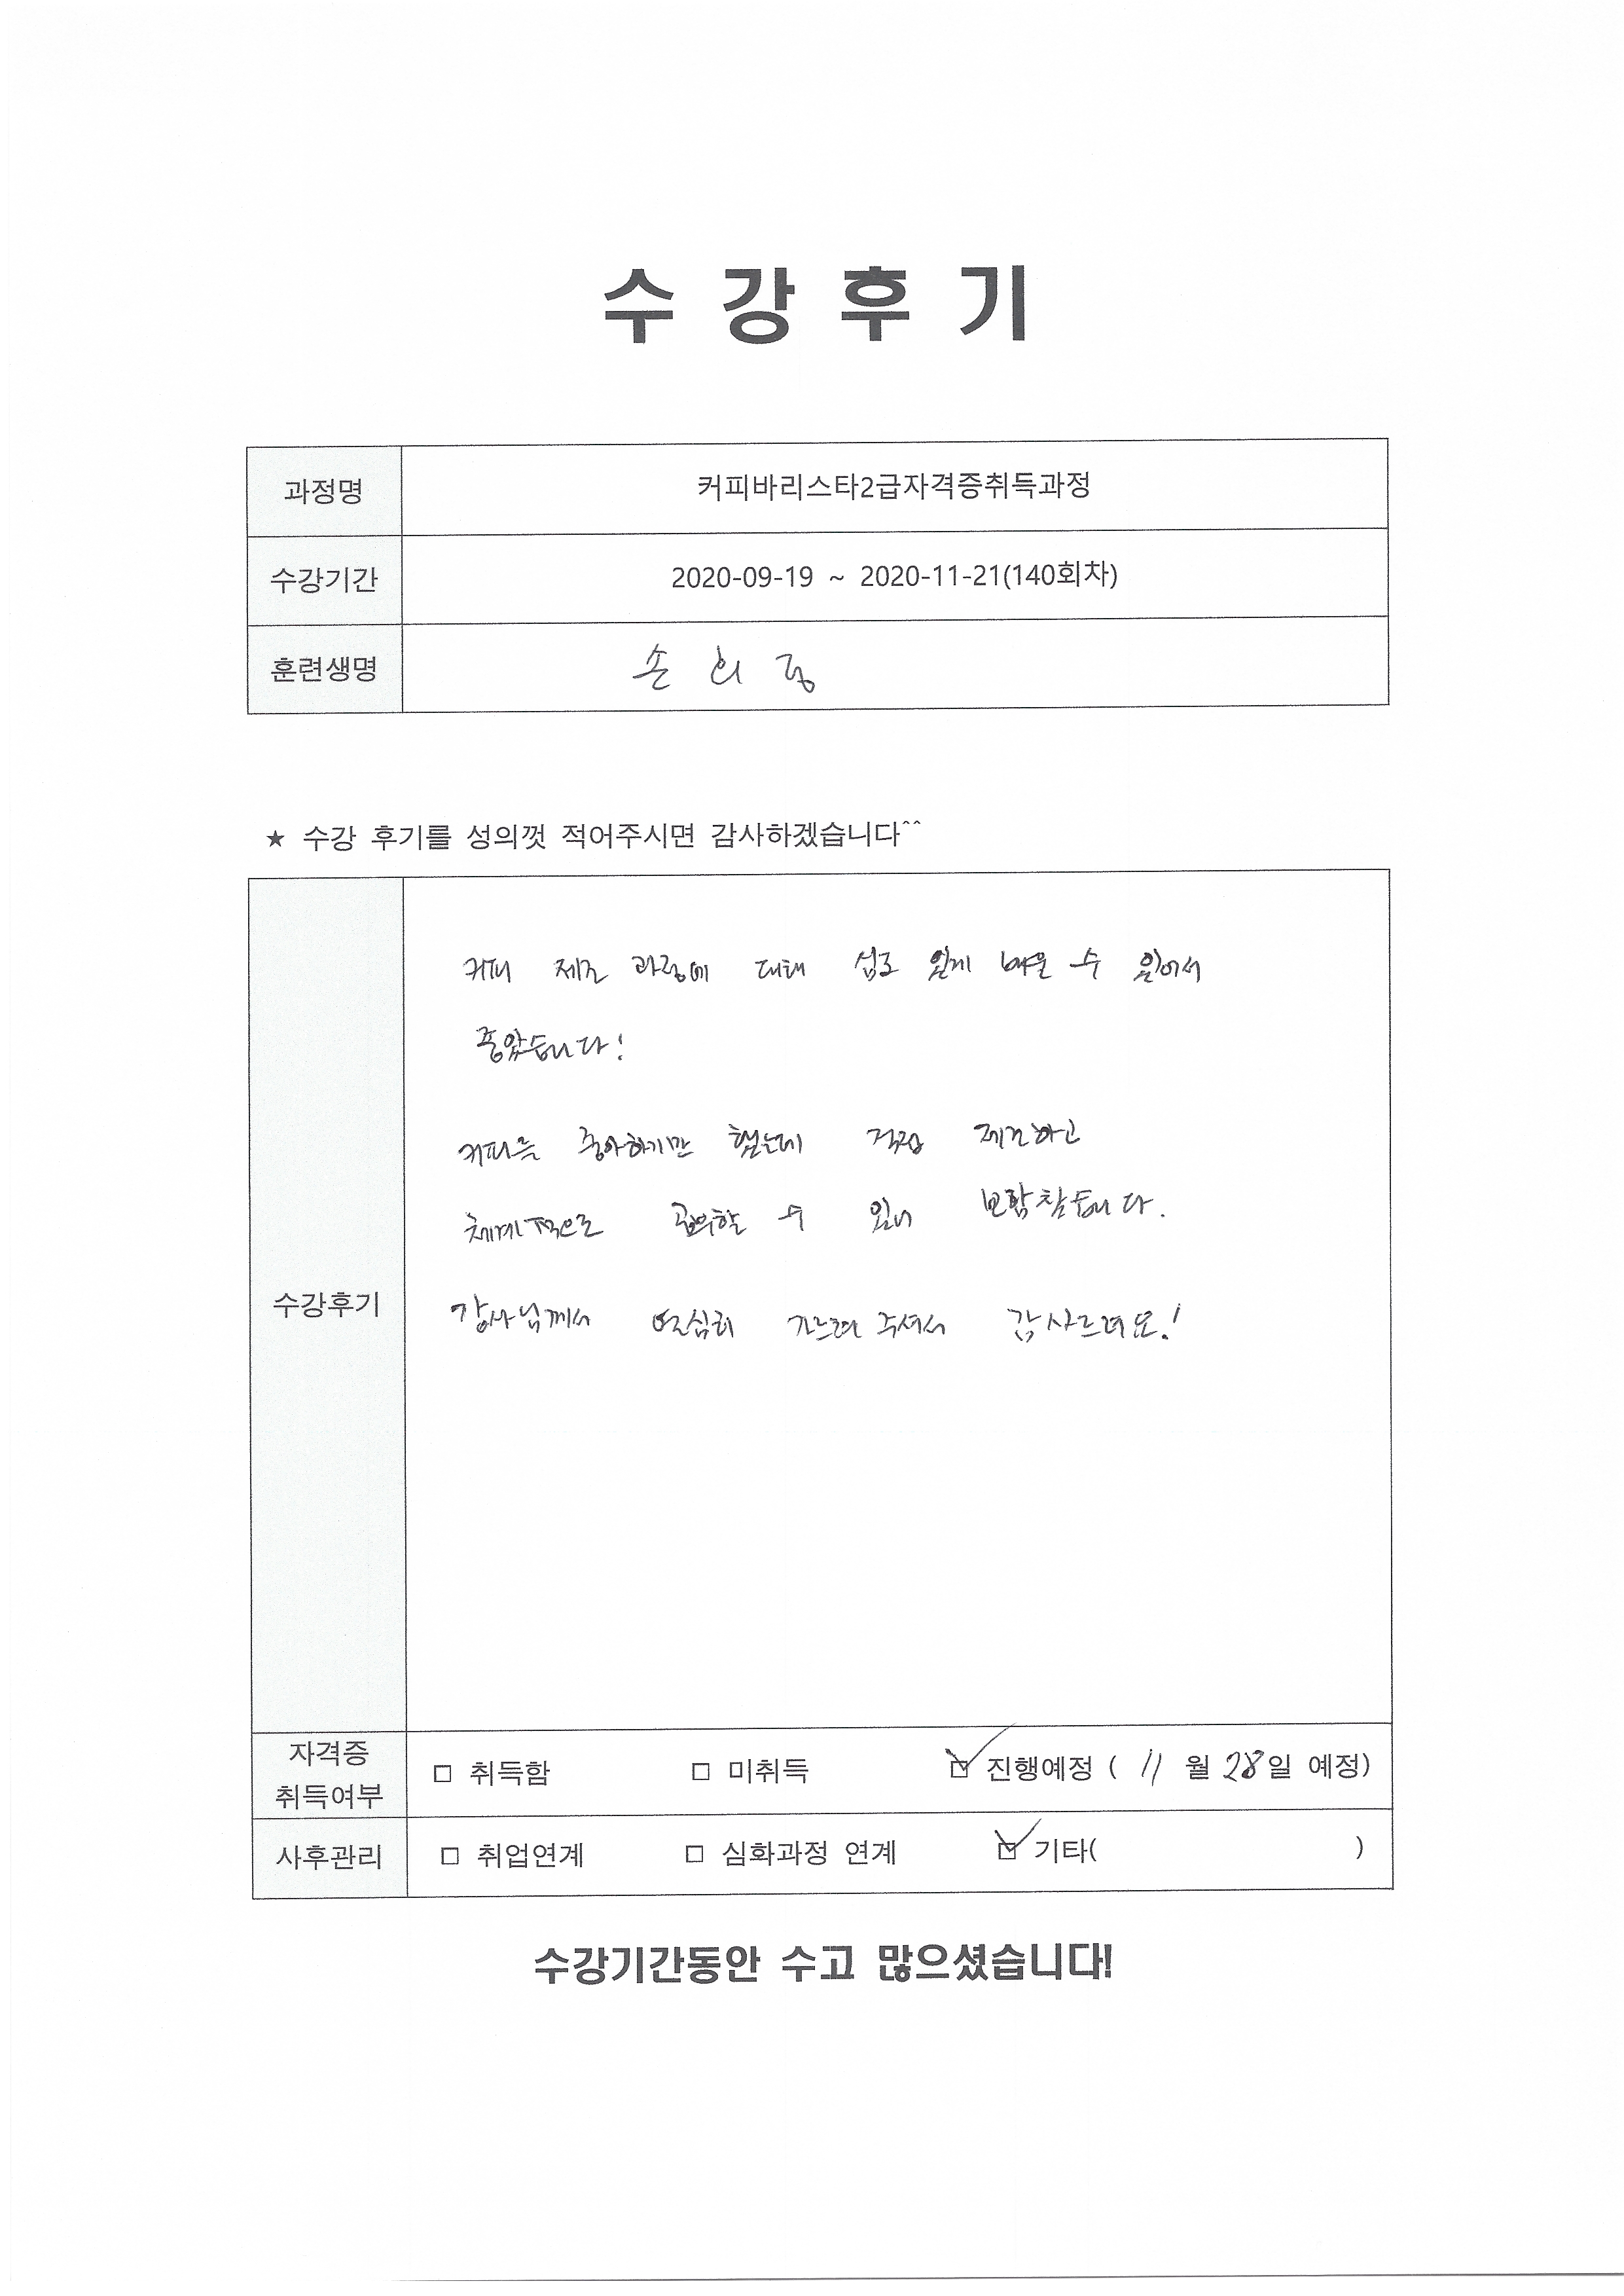 수 강 후 기
과정명 커피바리스타2급자격증취득과정
수강기간 2020-09-19 ~ 2020-11-21(140회차)
훈련생명 손 희 정
★ 수강 후기를 성의껏 적어주시면 감사하겠습니다^^
커피 제조 과정에 대해 심도 있게 배울 수 있어서
좋았습니다!
커피를 좋아하기만 했는데 직접 제조하고
체계적으로 공부할 수 있어 보람찼습니다.
수강후기
강사님께서 열심히 가르쳐 주셔서 감사드려요!
자격증
취득여부
□ 취득함 □ 미취득 ☑ 진행예정 ( 11 월 28일 예정)
사후관리 □ 취업연계 □ 심화과정 연계 ☑ 기타( )
수강기간동안 수고 많으셨습니다!